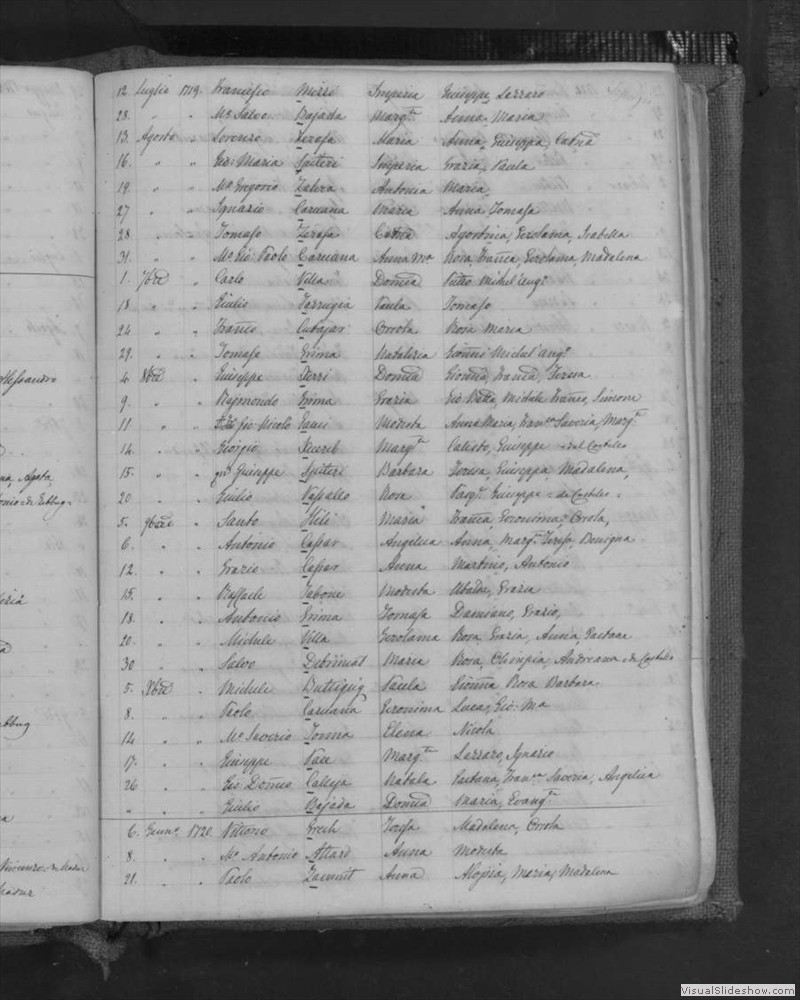 Alessandro
na, Agata
onio de Zebbug
Zebbug
Vincenzo de
12 Luglio 1719. Francesco Mizzi Imperia Giuseppe Lazzaro
28. " " Mro Salvo Bajada Margta Anna, Maria
13. Agosto " Lorenzo Zerafa Maria Anna, Giuseppa, Catna
16. " " Gio: Maria Spiteri Imperia Grazia, Paula
19. " " Mro Gregorio Zahra Antonia Maria,
27 " " Ignazio Caruana Maria Anna, Tomasa
28 " " Tomaso Zerafa Catna Agostina, Gerolama, Isabella
31. " " Mro Gio: Paolo Caruana Anna Ma Rosa, Franca, Gerolama, Madalena
1. 7bre " Carlo Villa Domca Pietro Michel'ango
18 " " Giulio Farrugia Paula Tomaso
24 " " Franco Cubajar Orsola Rosa Maria
29. " " Tomaso Grima Natalizia Gionni Michel'ango
4 8bre " Giuseppe Domca Gionna, Franca, Teresa
9. " " Rajmondo Grima Grazia Gio: Btta, Michele Franco, Simone
11 " " Gio: Nicolò Modesta Anna Maria, Franca Saveria, Margta
14. " " Giorgio Xuereb Margta Calisto, Giuseppe del Castello
15. " " Giuseppe Spiteri Barbara Teresa, Giuseppa, Madalena,
20 " " Giulio Vassallo Rosa Giuseppe de Castello
5. 9bre " Santo Hili Maria Franca, Geronima, Orsola,
6. " " Antonio Cassar Angelica Anna, Margta Teresa, Benigna
12. " " Grazio Cassar Anna Martino, Antonio
15. " " Raffaele Tabone Modesta Ubaldo, Grazia
18. " " Antonio Grima Tomasa Damiano, Grazio,
20. " " Michele Villa Gerolama Rosa, Grazia, Anna, Gaetana
30 " " Salvo Debrincat Maria Rosa, Olimpia, Andreana de Castello
5. Xbre " Michele Buttigieg Paula Gionna Rosa Barbara
8. " " Paolo Caruana Geronima Luca, Gio: Ma
14 " " Mro Saverio Tonna Elena Nicola
17. " " Giuseppe Pace Margta Lazzaro, Ignazio
26 " " Gio: Domco Calleja Natala Gaetana, Franca Saveria, Angelica
" " " Giulio Bajada Domca Maria, Evangta
6. Genno 1720. Vittorio Grech Teresa Madalena, Orsola
8. " " Mro Antonio Attard Anna Modesta
21. " " Paolo Zammit Anna Aloisia, Maria, Madalena
VisualSlideshow.com